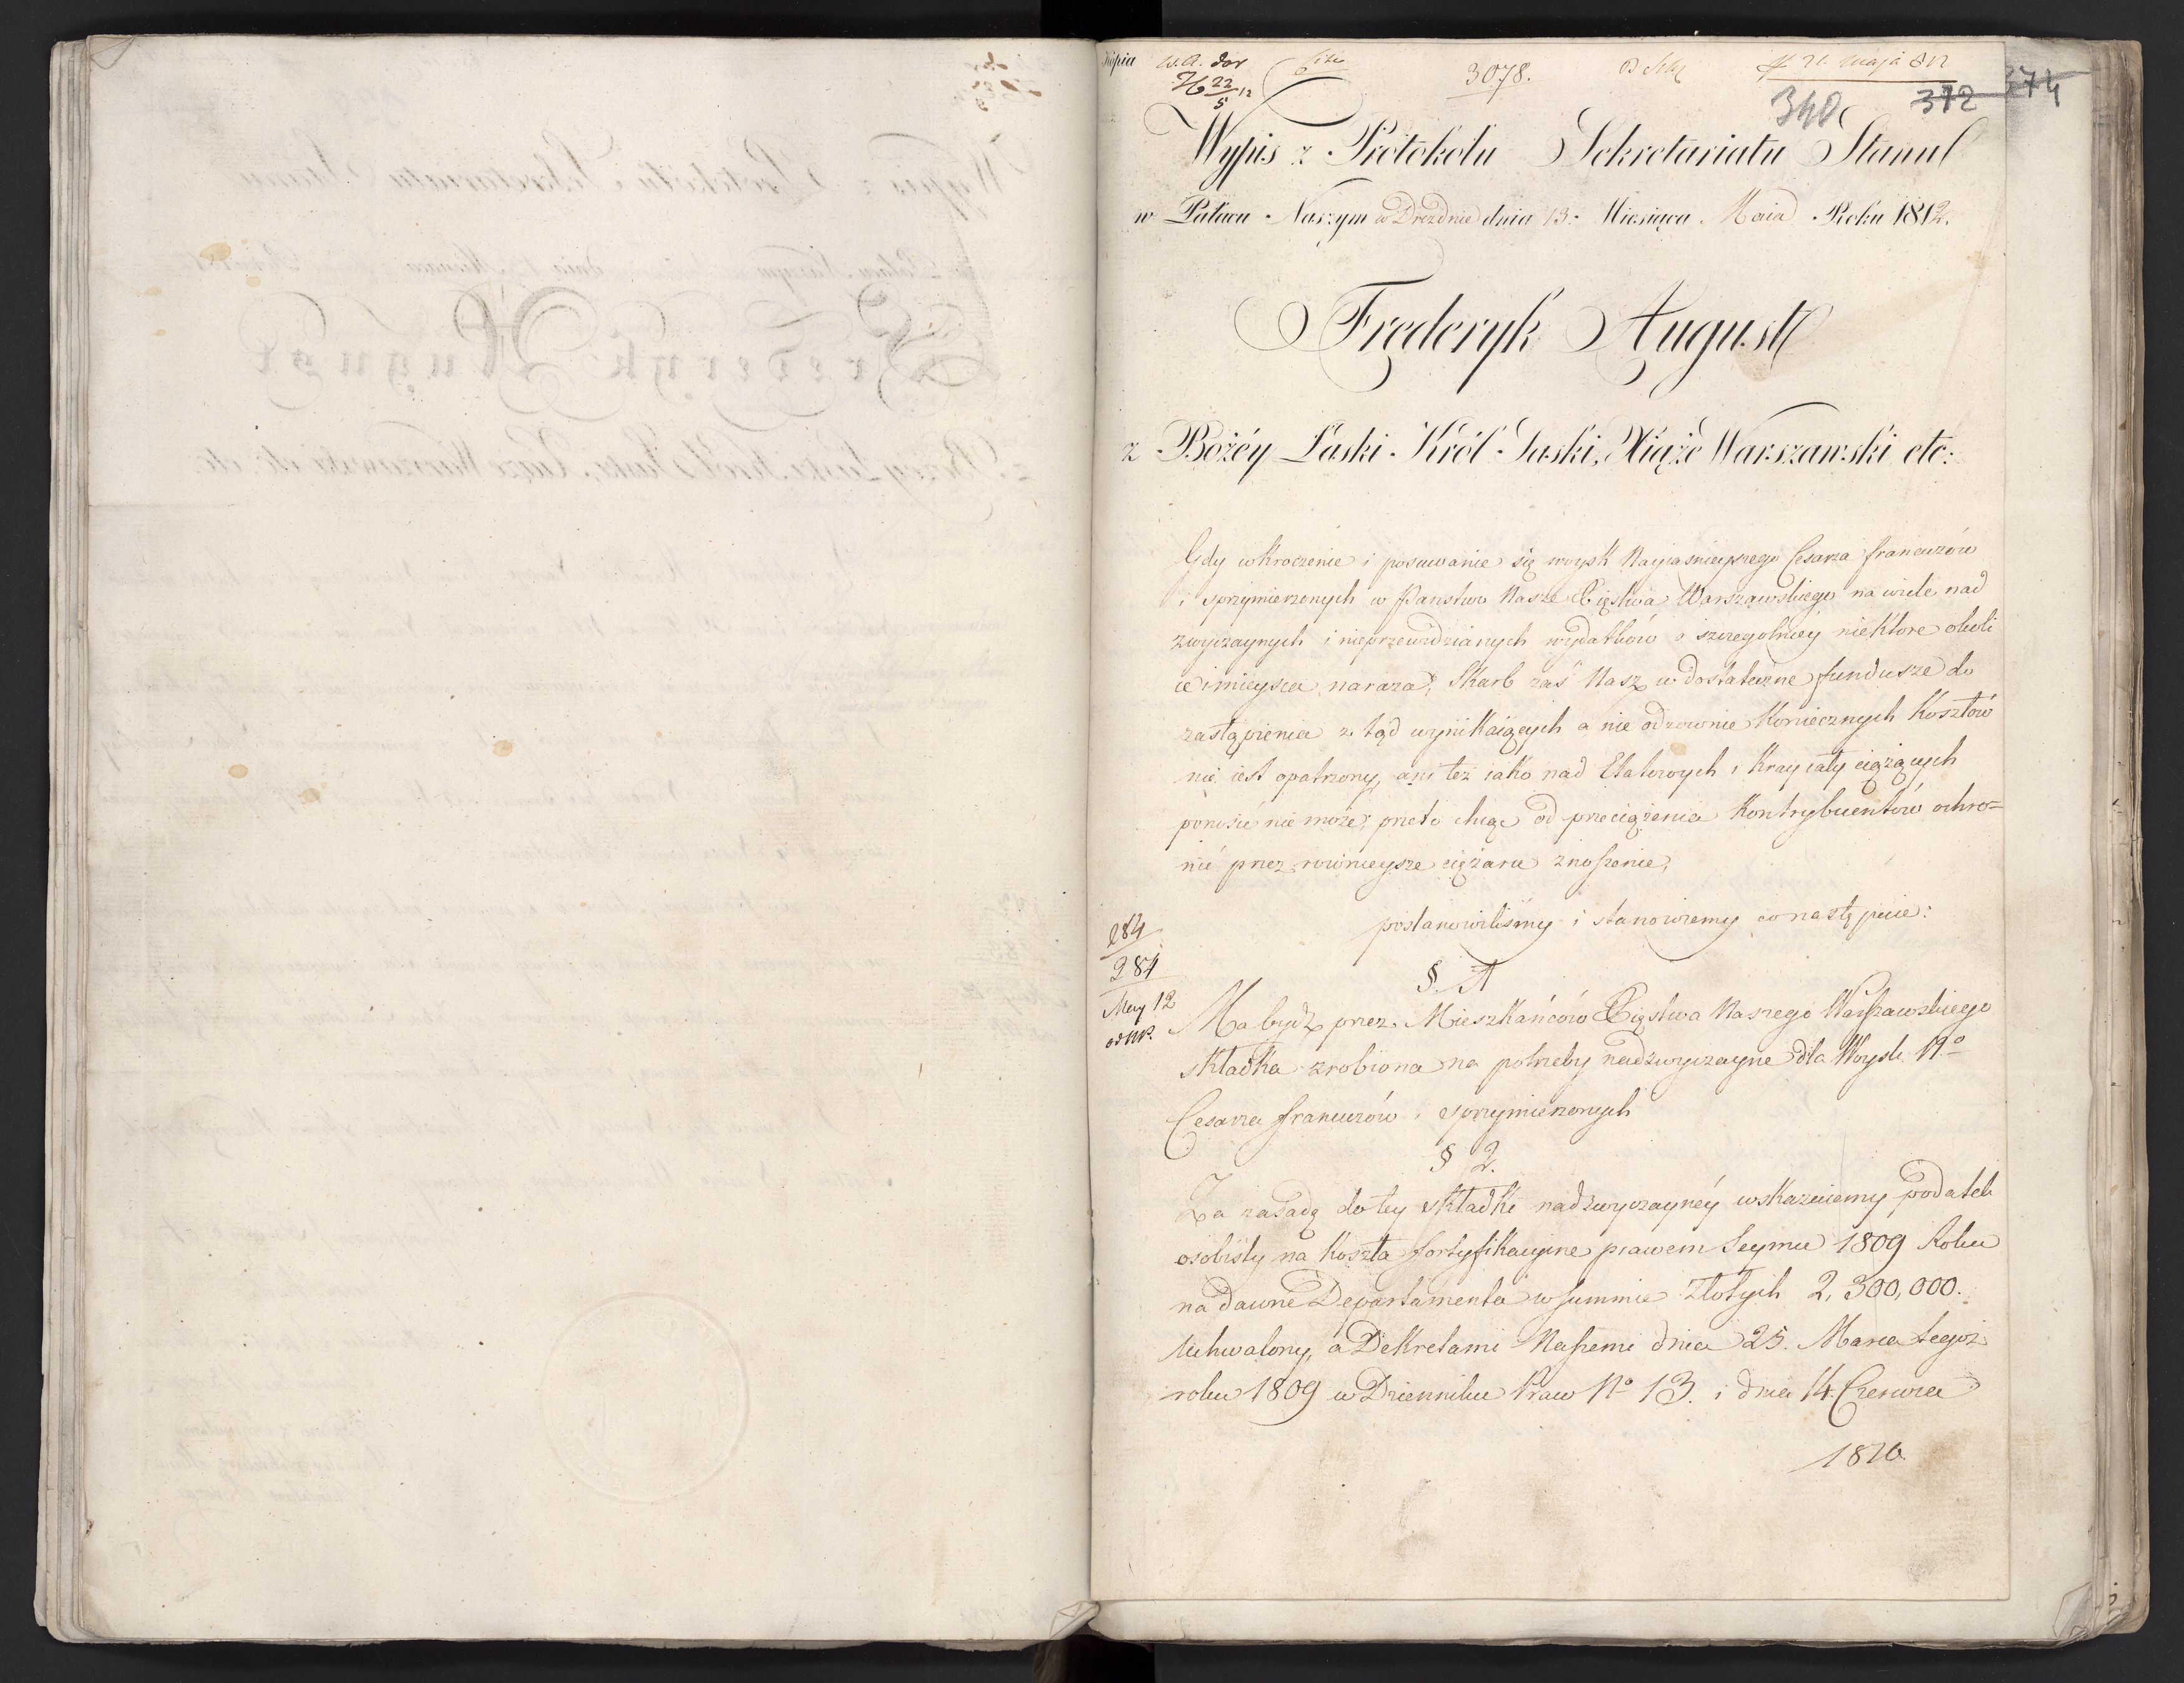 Kopia
3078.
21 maja 812
340 372 374
Wypis z Protokołu Sekretariatu Stanu
w Pałacu Naszym w Dreźnie dnia 13. Miesiąca Maia Roku 1812.
Fryderyk August
z Bożéy Łaski Król Saski, Xiąże Warszawski etc:
Gdy wkroczenie i posuwanie się woysk Nayiasnieyszego Cesarza francuzów
i sprzymierzonych w Panstwo Nasze Xięstwa Warszawskiego na wiele nad
zwyczaynych i nieprzewidzianych wydatków a szczegolniey niektore okoli
ce i mieysca naraża, Skarb zaś Nasz w dostateczne fundusze do
zastąpienia z tąd wynikaiących a nie odzownie koniecznych kosztów
nie iest opatrzony, ani też iako nad Etatowych i kray cały ciążących
ponosić nie może; przeto chcąc od przeciążenia kontrybuentów ochro=
nić przez rownieysze ciężaru znoszenie,
postanowiliśmy i stanowiemy co następuie:
284
284
May 12
§. 1
Ma bydz przez Mieszkańców Xięstwa Naszego Warszawskiego
składka zrobiona na potrzeby nadzwyczayne dla Woysk No
Cesarza francuzów i sprzymierzonych
§ 2.
Za zasadę do tey składki nadzwyczaynéy wskazuiemy podatek
osobisty na koszta fortyfikacyine prawem Seymu 1809 Roku
na dawne Departamenta w summie złotych 2,300,000.
uchwalony, a Dekretami Naszemi dnia 25. Marca tegoż
roku 1809 w Dzienniku Praw No 13. i dnia 14. Czerwca
1810